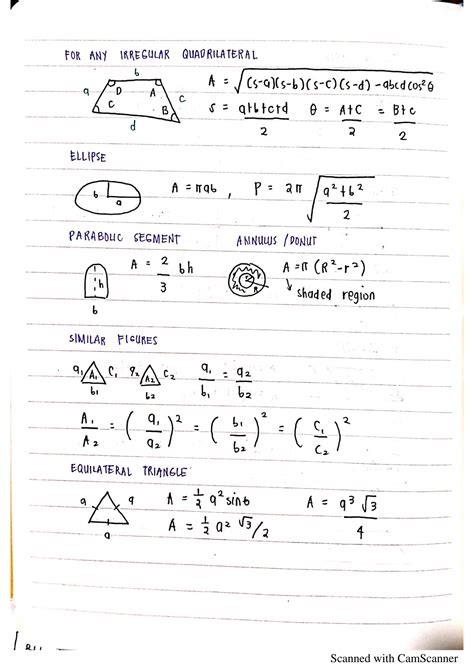 FOR ANY IRREGULAR QUADRILATERAL
b
a D A c
C B
d
A = √(s-a)(s-b)(s-c)(s-d) - abcd cos²θ
s = a+b+c+d / 2 θ = A+C / 2 = B+C / 2
ELLIPSE
b a
A = πab , P = 2π √a²+b² / 2
PARABOLIC SEGMENT ANNULUS / DONUT
h
b
A = 2/3 bh
R
A = π (R²-r²)
↳ shaded region
SIMILAR FIGURES
a₁ A₁ C₁ a₂ A₂ C₂
b₁ b₂
a₁/b₁ = a₂/b₂
A₁/A₂ = (a₁/a₂)² = (b₁/b₂)² = (C₁/C₂)²
EQUILATERAL TRIANGLE
a a
a
A = 1/2 a² sin6 A = a³ √3 / 4
A = 1/2 a² √3/2
Scanned with CamScanner